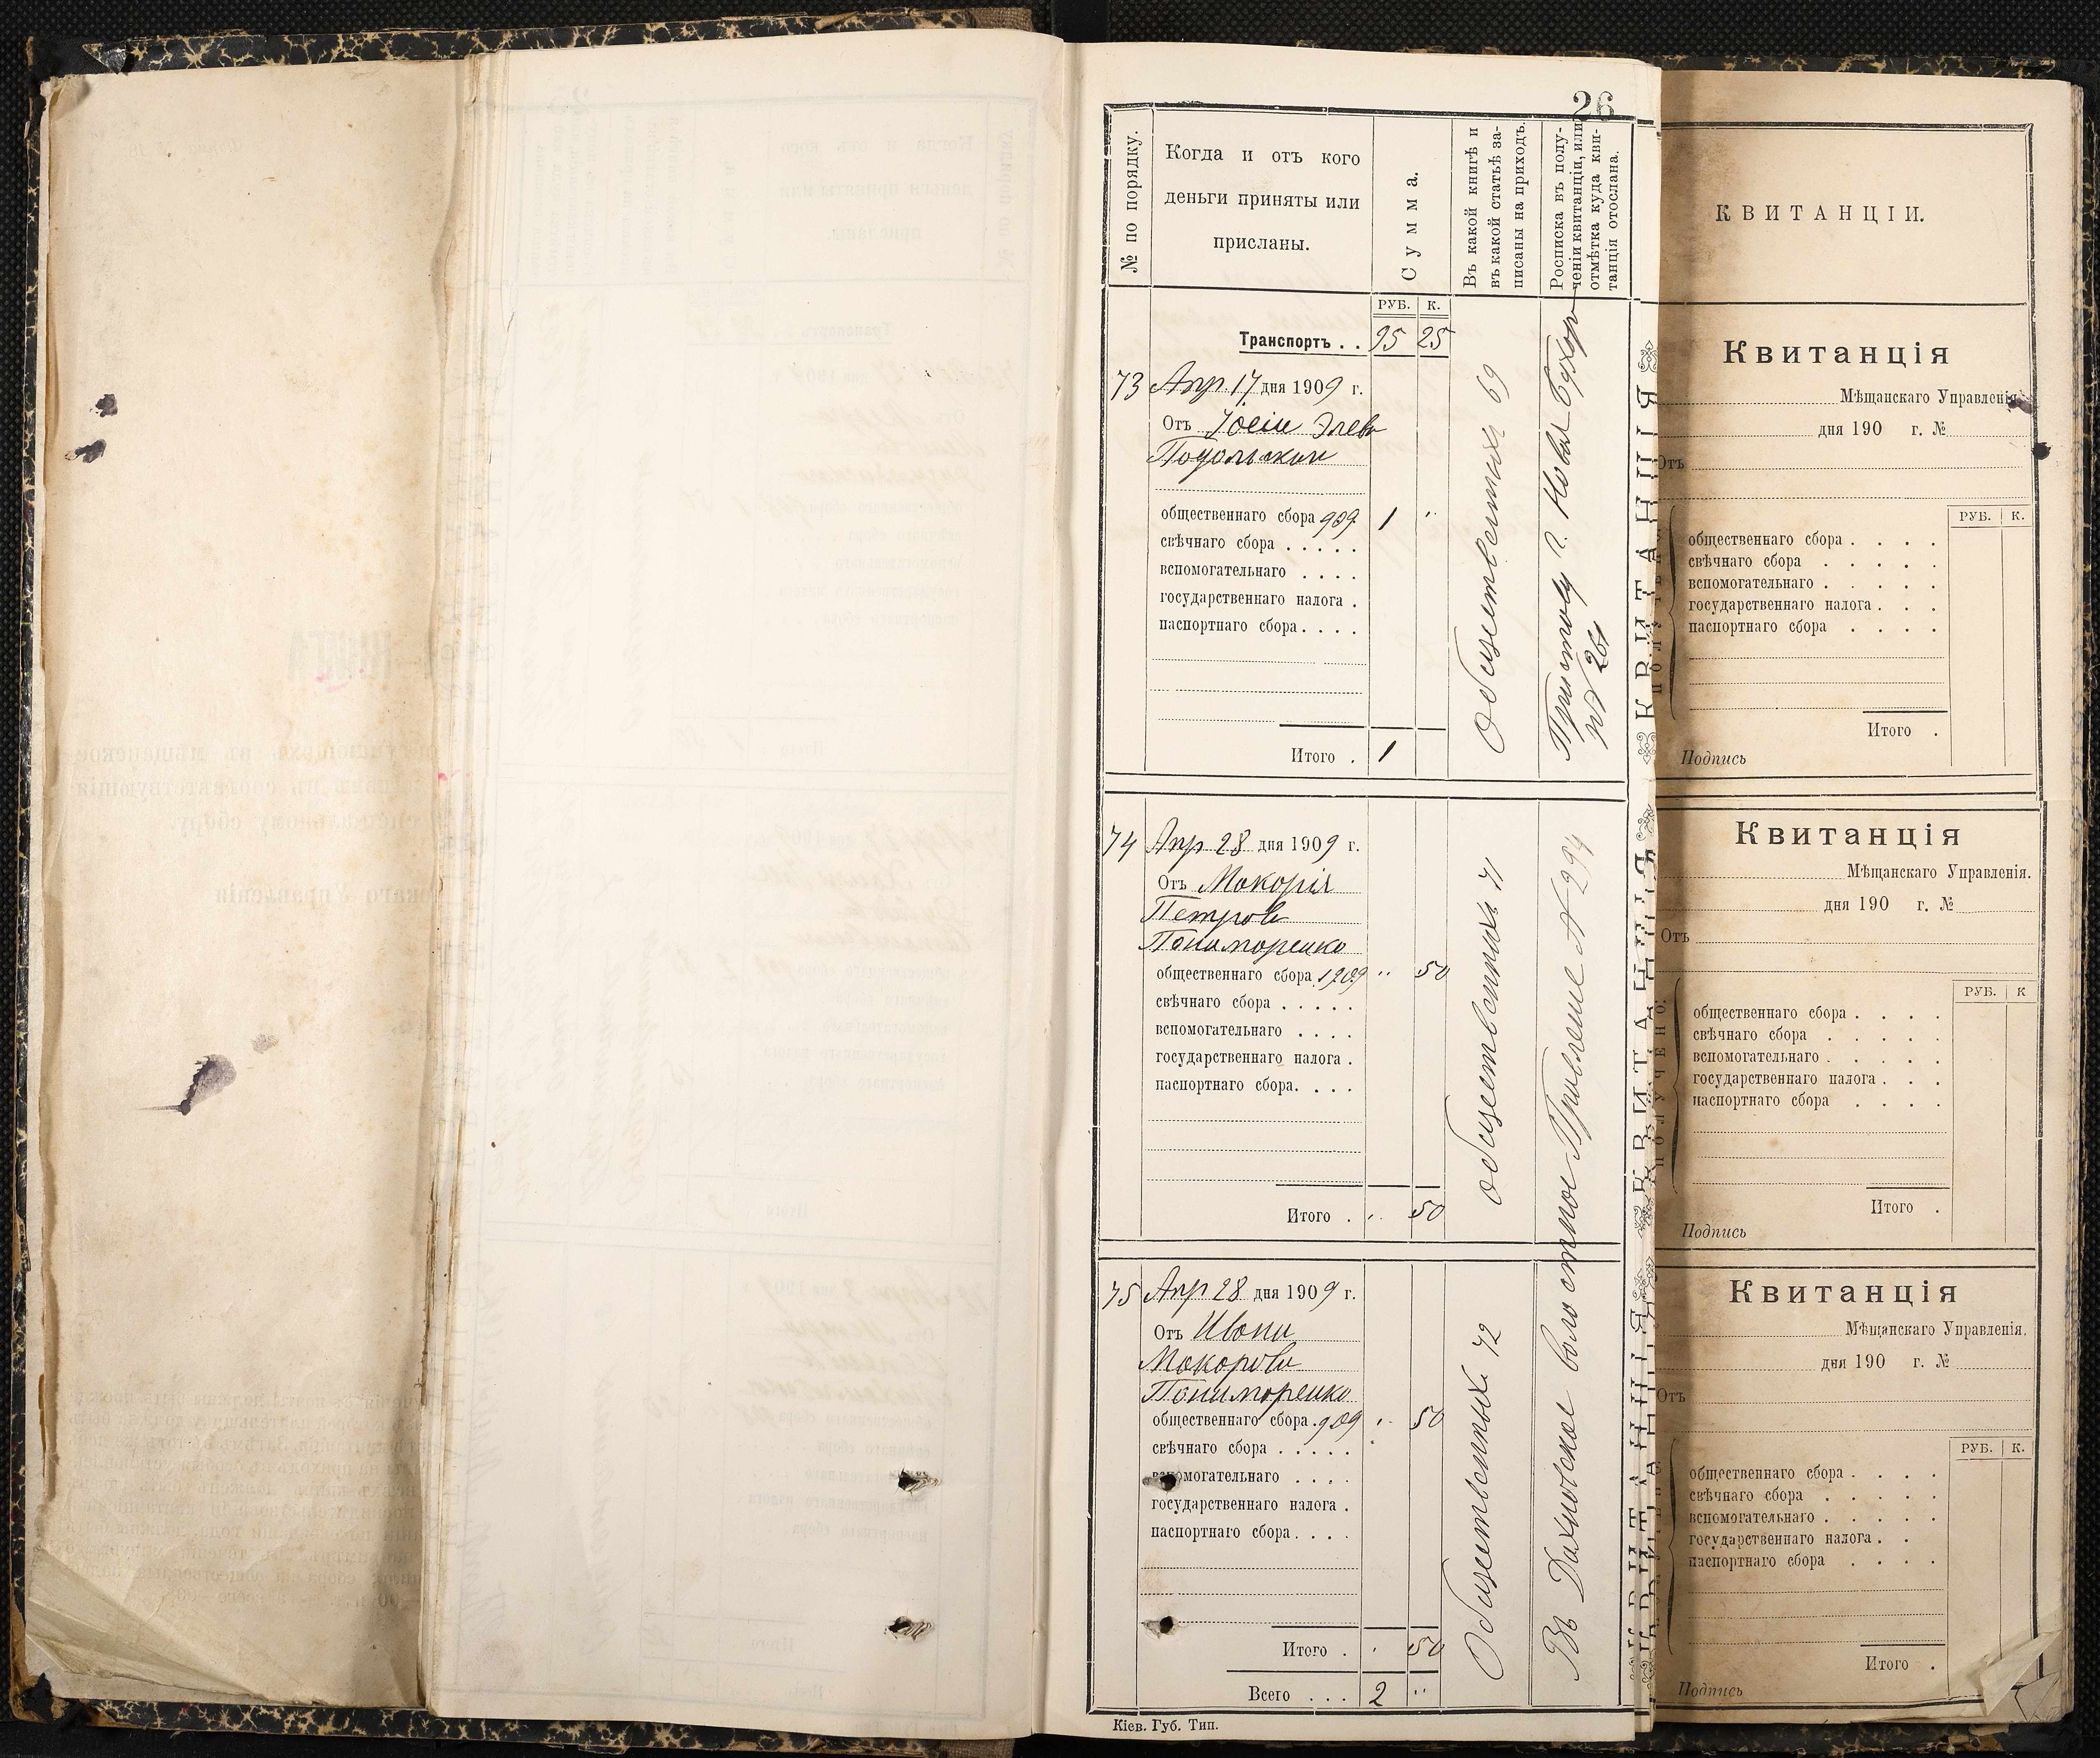 26
№ по порядку.
Когда и отъ кого
деньги приняты или
присланы.
Сумма.
Въ какой книгѣ и
въ какой статьѣ за-
писаны на приходъ.
Росписка въ полу-
ченіи квитанціи, или
отмѣтка куда кви-
танція отослана.
РУБ. К.
Транспортъ . . 95 25
73 Апр. 17 дня 1909 г.
Отъ
общественнаго сбора 909 1 "
свѣчнаго сбора . . . . .
вспомогательнаго . . . .
государственнаго налога .
паспортнаго сбора . . . .
Итого . 1
Общественных 69
Приставу г.
№ 261
74 Апр 28 дня 1909 г.
Отъ Макорія
Петрова
Пономаренко
общественнаго сбора 1909 " 50
свѣчнаго сбора . . . . .
вспомогательнаго . . . .
государственнаго налога .
паспортнаго сбора. . . .
Итого . " 50
общественных 71
75 Апр 28 дня 1909 г.
Отъ Ивана
Макорова
Пономаренко
общественнаго сбора . 909 " 50
свѣчнаго сбора . . . . .
вспомогательнаго . . . .
государственнаго налога .
паспортнаго сбора . . . .
Итого . " 50
Всего . . . 2 "
Общественных 72
Въ Дахновское волостное Правление № 294
Кіев. Губ. Тип.
КВИТАНЦІЯ
КВИТАНЦІИ.
Квитанція
Мѣщанскаго Управленія.
дня 190 г. №
Отъ
РУБ. К.
ПОЛУЧЕНО:
общественнаго сбора . . . .
свѣчнаго сбора . . . . .
вспомогательнаго . . . . .
государственнаго налога . . .
паспортнаго сбора . . . .
Итого .
Подпись
Квитанція
Мѣщанскаго Управленія.
дня 190 г. №
Отъ
РУБ. К
ПОЛУЧЕНО:
общественнаго сбора . . . .
свѣчнаго сбора . . . . .
вспомогательнаго . . . . .
государственнаго налога . . .
паспортнаго сбора . . . .
Итого .
Подпись
Квитанція
Мѣщанскаго Управленія.
дня 190 г. №
Отъ
РУБ. К.
общественнаго сбора . . . .
свѣчнаго сбора . . . . .
вспомогательнаго . . . . .
государственнаго налога . .
паспортнаго сбора . . . .
Итого .
Подпись